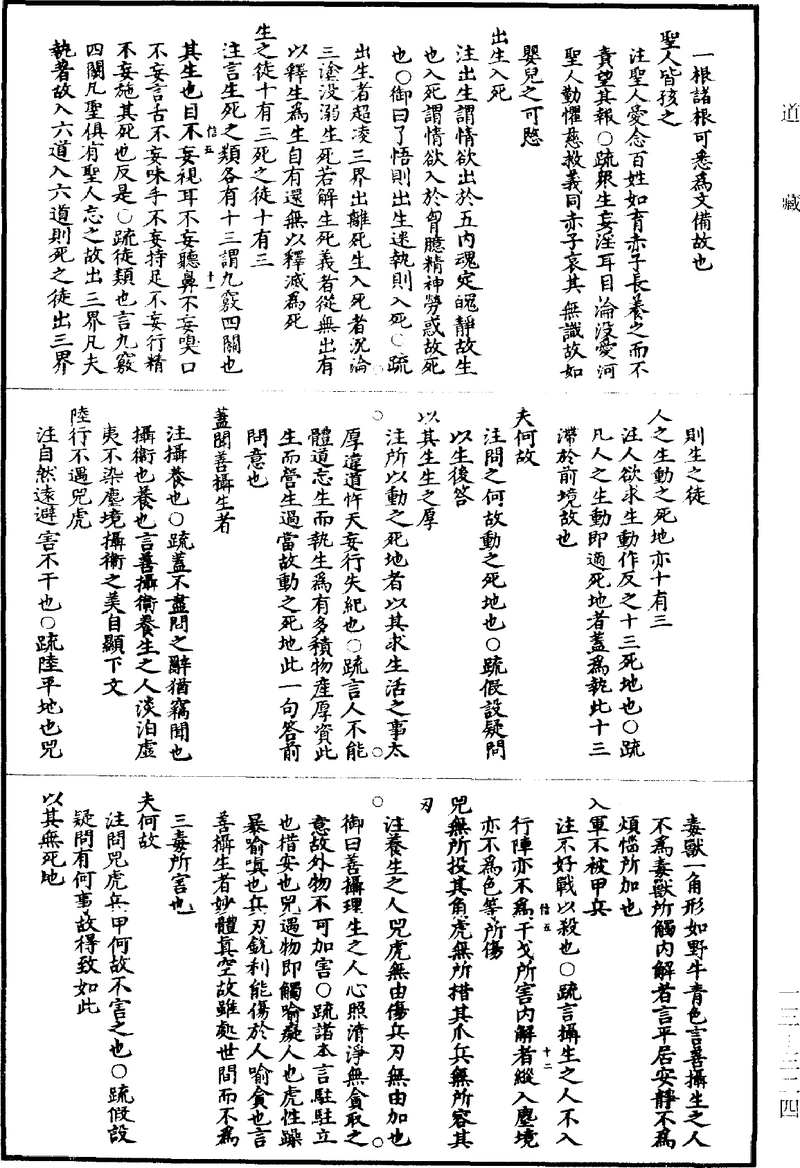 道藏
一根諸根可悉為文備故也
聖人皆孩之
注聖人愛念百姓如育赤子長養之而不
責望其報○疏眾生妄淫耳目淪沒愛河
聖人勤懼慈救義同赤子哀其無識故如
嬰兒之可愍
出生入死
注出生謂情欲出於五內魂定魄靜故生
也入死謂情欲入於胷臆精神勞惑故死
也○御曰了悟則出生迷執則入死○疏
出生者超凌三界出離死生入死者沉淪
三塗没溺生死若解生死義者從無出有
以釋生為生自有還無以釋滅為死
生之徒十有三死之徒十有三
注言生死之類各有十三謂九竅四關也
其生也目不妄視耳不妄聽鼻不妄嗅口
不妄言舌不妄味手不妄持足不妄行精
不妄施其死也反是○疏徒類也言九竅
四關凡聖俱有聖人忘之故出三界凡夫
執著故入六道入六道則死之徒出三界
信五
十一
則生之徒
人之生動之死地亦十有三
注人欲求生動作反之十三死地也○疏
凡人之生動即適死地者蓋為執此十三
滯於前境故也
夫何故
注問之何故動之死地也○疏假設疑問
以生後答
以其生生之厚
注所以動之死地者以其求生活之事太
厚違道忤天妄行失紀也○疏言人不能
體道忘生而執生為有多積物產厚資此
生而營生過當故動之死地此一句答前
問意也
蓋聞善攝生者
注攝養也○疏蓋不盡問之辭猶竊聞也
攝衛也養也言善攝衛養生之人淡泊虛
夷不染塵境攝衛之美自顯下文
陸行不遇兕虎
注自然遠避害不干也○疏陸平地也兕
毒獸一角形如野牛青色言善攝生之人
不為毒獸所觸內解者言平居安靜不為
煩惱所加也
入軍不被甲兵
注不好戰以殺也○疏言攝生之人不入
行陣亦不為干戈所害內解者縱入塵境
亦不為色等所傷
信五
十二
兕無所投其角虎無所措其爪兵無所容其
刃
注養生之人兕虎無由傷兵刃無由加也
御曰善攝理生之人心照清淨無貪取之
意故外物不可加害○疏諸本言駐駐立
也措安也兕遇物即觸喻癡人也虎性躁
暴喻嗔也兵刃銳利能傷於人喻貪也言
善攝生者妙體真空故雖處世間而不為
三毒所害也
夫何故
注問兕虎兵甲何故不害之也○疏假設
疑問有何事故得致如此
以其無死地
一三-三二四